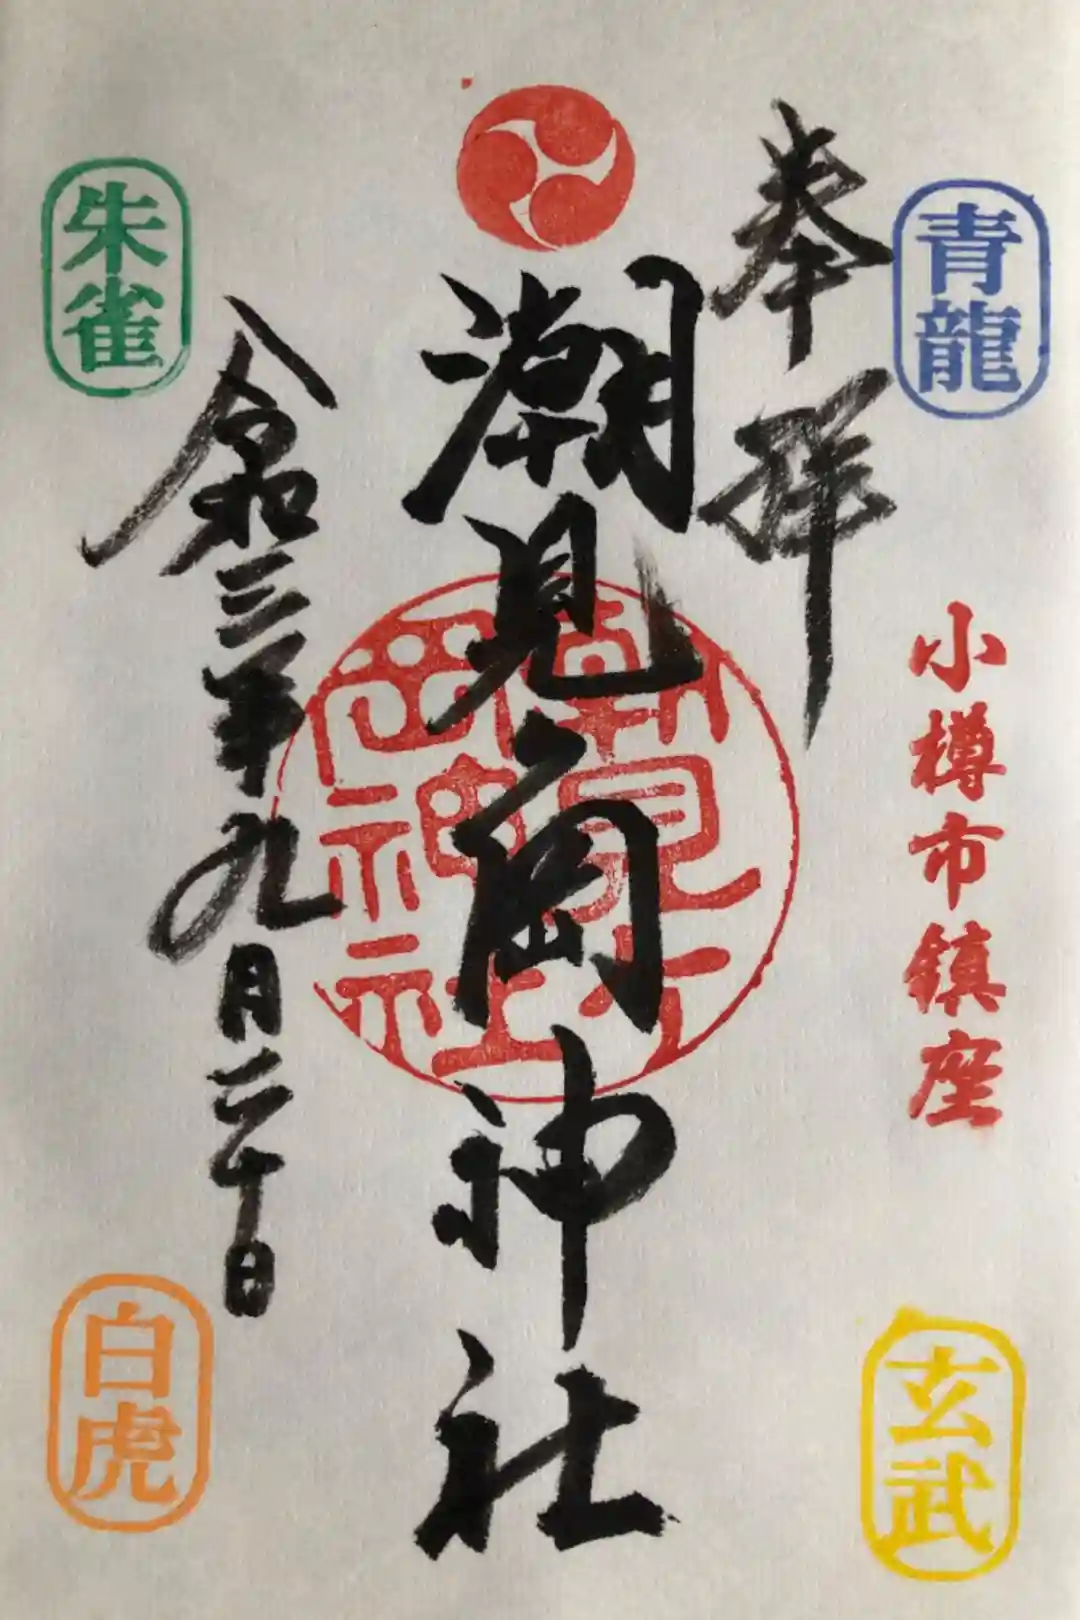 青龍
奉拝
小樽市鎮座
玄武
潮見ヶ岡神社
潮見ヶ岡神社
令和三年九月二十日
朱雀
白虎